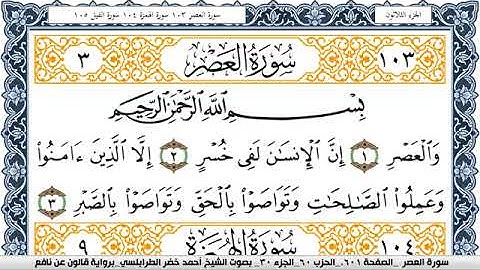 الجزء الثلاثون
سورة العصر ١٠٣ سورة الهمزة ١٠٤ سورة الفيل ١٠٥
١٠٣ سُورَةُ العَصْرِ ٣
بِسْمِ اللَّهِ الرَّحْمَٰنِ الرَّحِيمِ
وَالْعَصْرِ ١ إِنَّ الْإِنسَٰنَ لَفِى خُسْرٍ ٢ إِلَّا الَّذِينَ ءَامَنُوا
وَعَمِلُوا الصَّٰلِحَٰتِ وَتَوَاصَوْا بِالْحَقِّ وَتَوَاصَوْا بِالصَّبْرِ ٣
١٠٤ سُورَةُ الهُمَزَةِ ٩
سورة العصر _الصفحة ٦٠١_ الحزب ٦٠_الجزء ٣٠_ بصوت الشيخ أحمد خضر الطرابلسي_برواية قالون عن نافع